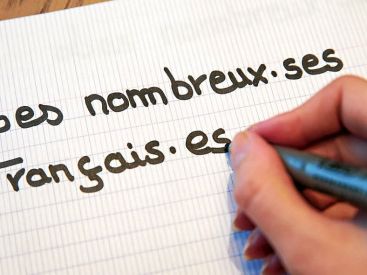 des nombreux·ses
Français·es